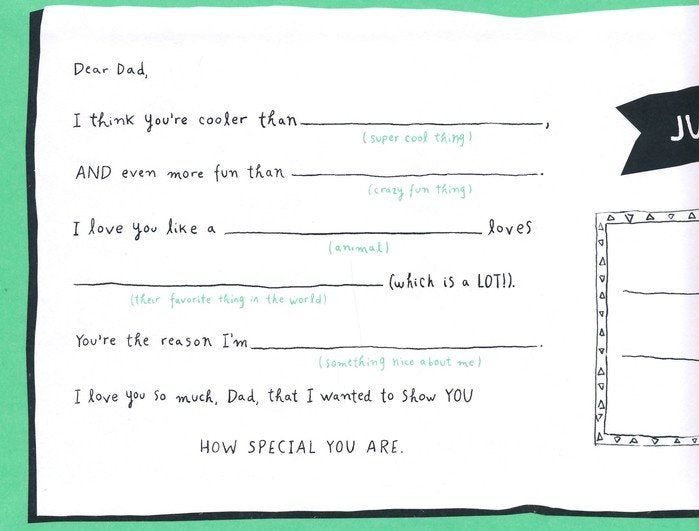 Dear Dad,
I think you're cooler than ,
(super cool thing)
AND even more fun than .
(crazy fun thing)
I love you like a loves
(animal)
(which is a LOT!).
(their favorite thing in the world)
You're the reason I'm .
(something nice about me)
I love you so much, Dad, that I wanted to show YOU
HOW SPECIAL YOU ARE.
JU